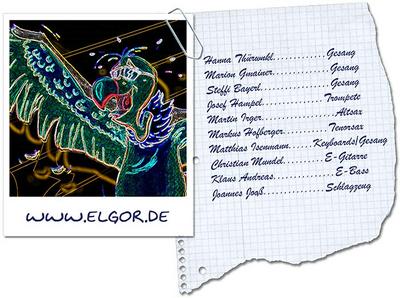 Hanna Thürwinkl............Gesang
Marion Gmainer............Gesang
Steffi Bayerl................Gesang
Josef Hampel.............Trompete
Martin Irger................Altsax
Markus Hofberger.........Tenorsax
Matthias Isenmann....Keyboards|Gesang
Christian Mundel..........E-Gitarre
Klaus Andreas..............E-Bass
Joannes Jooß............Schlagzeug
WWW.ELGOR.DE